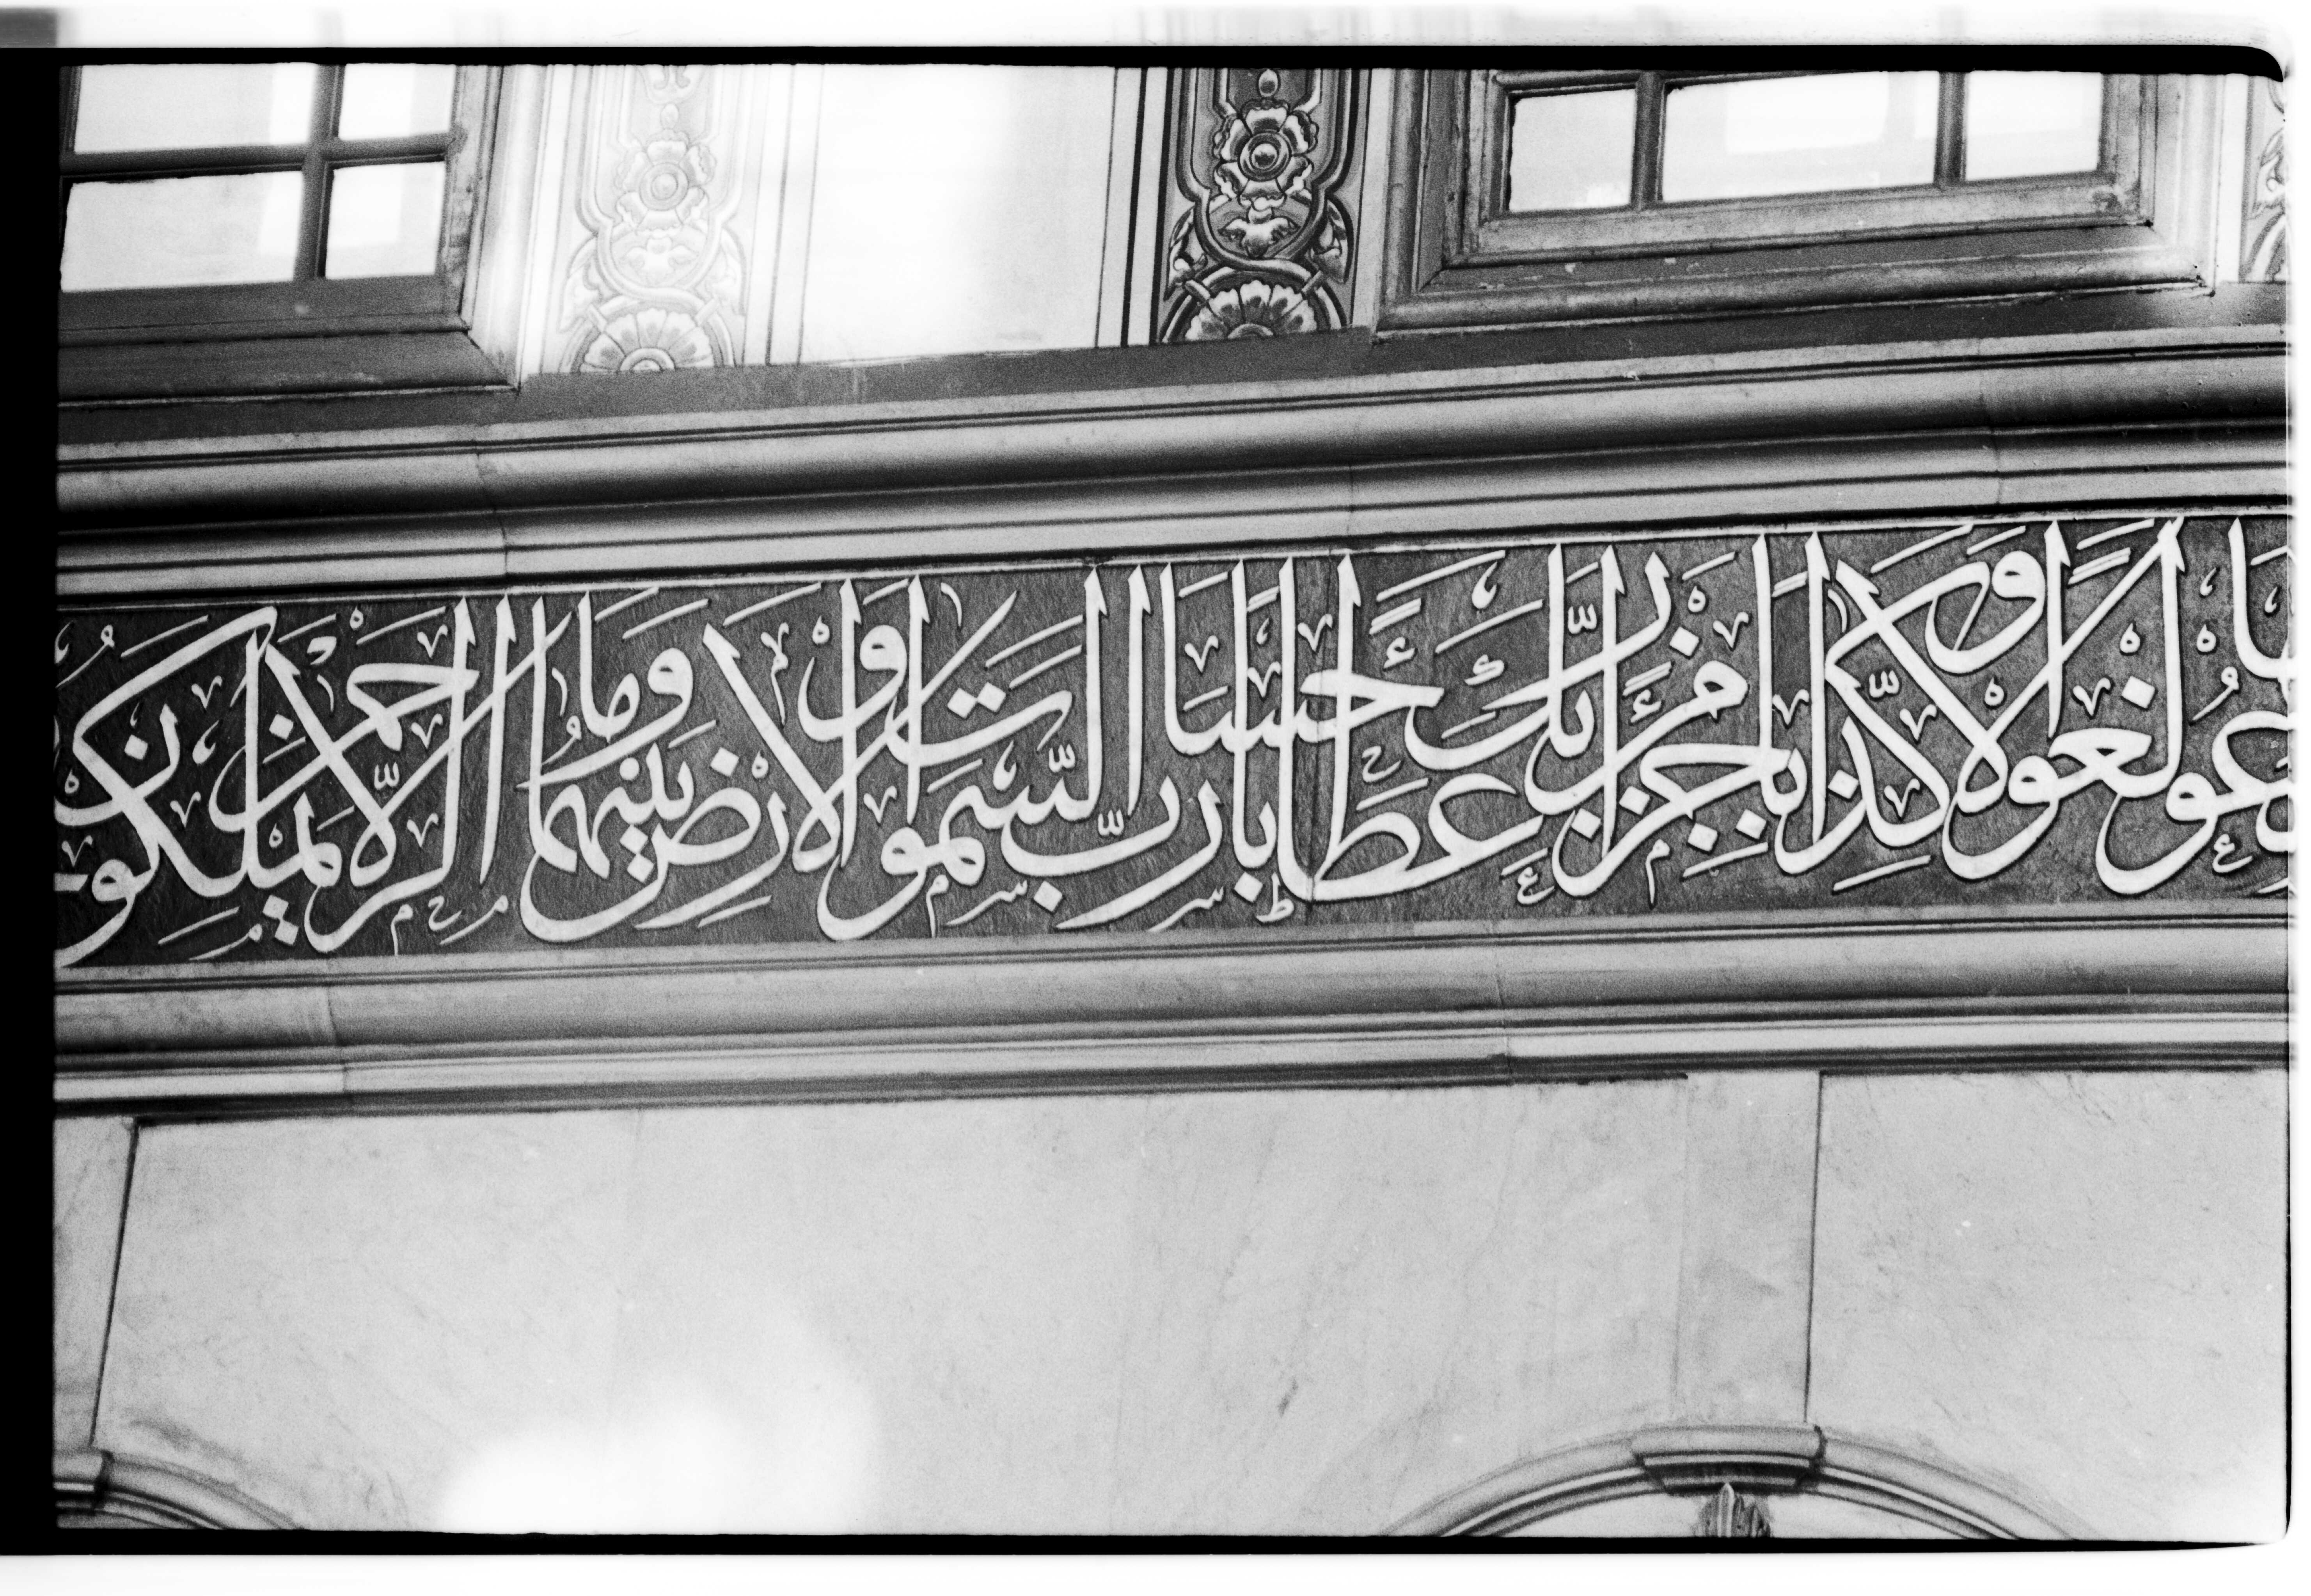 فيها لغوا ولا كذابا جزاء من ربك عطاء حسابا رب السموات والارض وما بينهما الرحمن لا يملكون